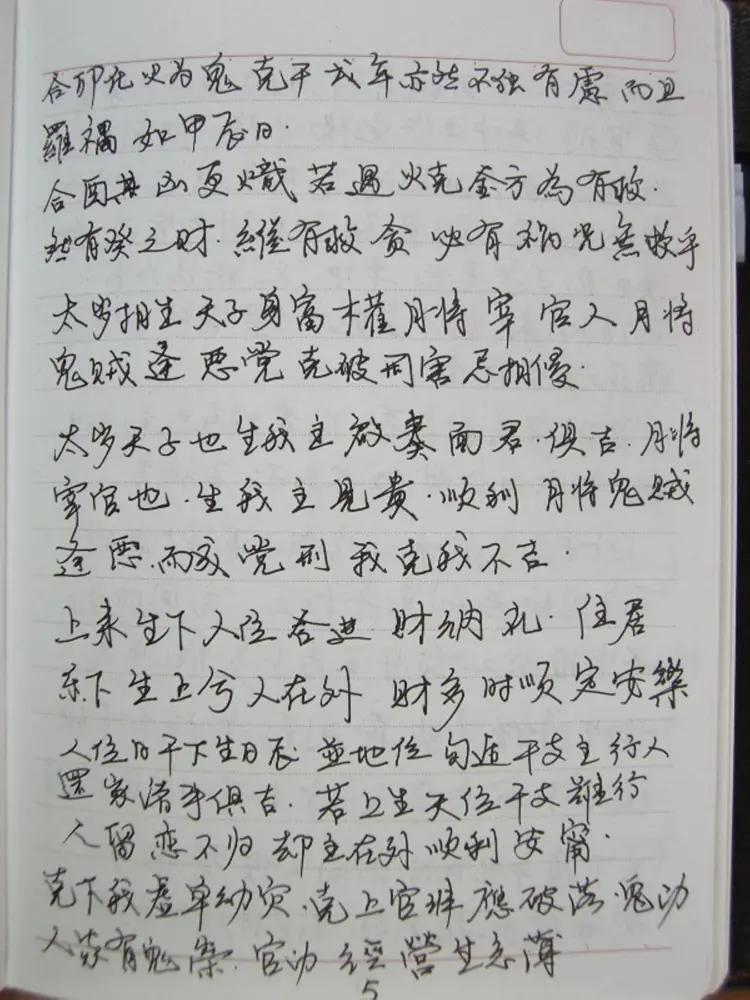 合卯充火为鬼克干戌年亦然不独有虑而且
羅禍如甲辰日.
合酉其凶更熾若遇火克金方為有救.
然有癸之財.縱有救贪必有祸况無救乎
太岁相生天子身富木權月将宰官人月将
鬼贼逢恶党克破刑害忌相侵.
太岁天子也生我主啟奏面君.俱吉.月将
宰官也.生我主見貴.順利月将鬼贼
逢恶.而成党刑我克我不吉.
上来生下入位各进財纳礼.住居
下生上兮人在外財多时顺定安樂
人位日干下生日辰並地位干支主行人
還家诸事俱吉.若上生天位干支難行
人留恋不归却主在外順利安甯.
克下我卑幼灾.克上官班應破落.鬼动
人有鬼祟.官动經營生意薄
5